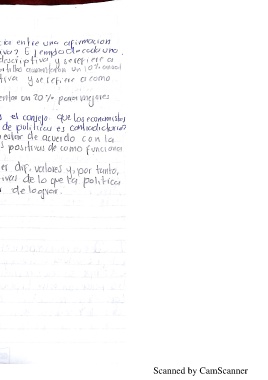 cia entre una afirmacion
iva? Ejemplo de cada uno.
descriptiva y se refiere a
un 10%
tiva y se refiere a como
un 20% para mejores
s el consejo que los economistas
de politicas es contradictorio?
estar de acuerdo con la
s positivas de como funciona
er dif. valores y, por tanto,
ivas de lo que la politica
de lograr.
Scanned by CamScanner